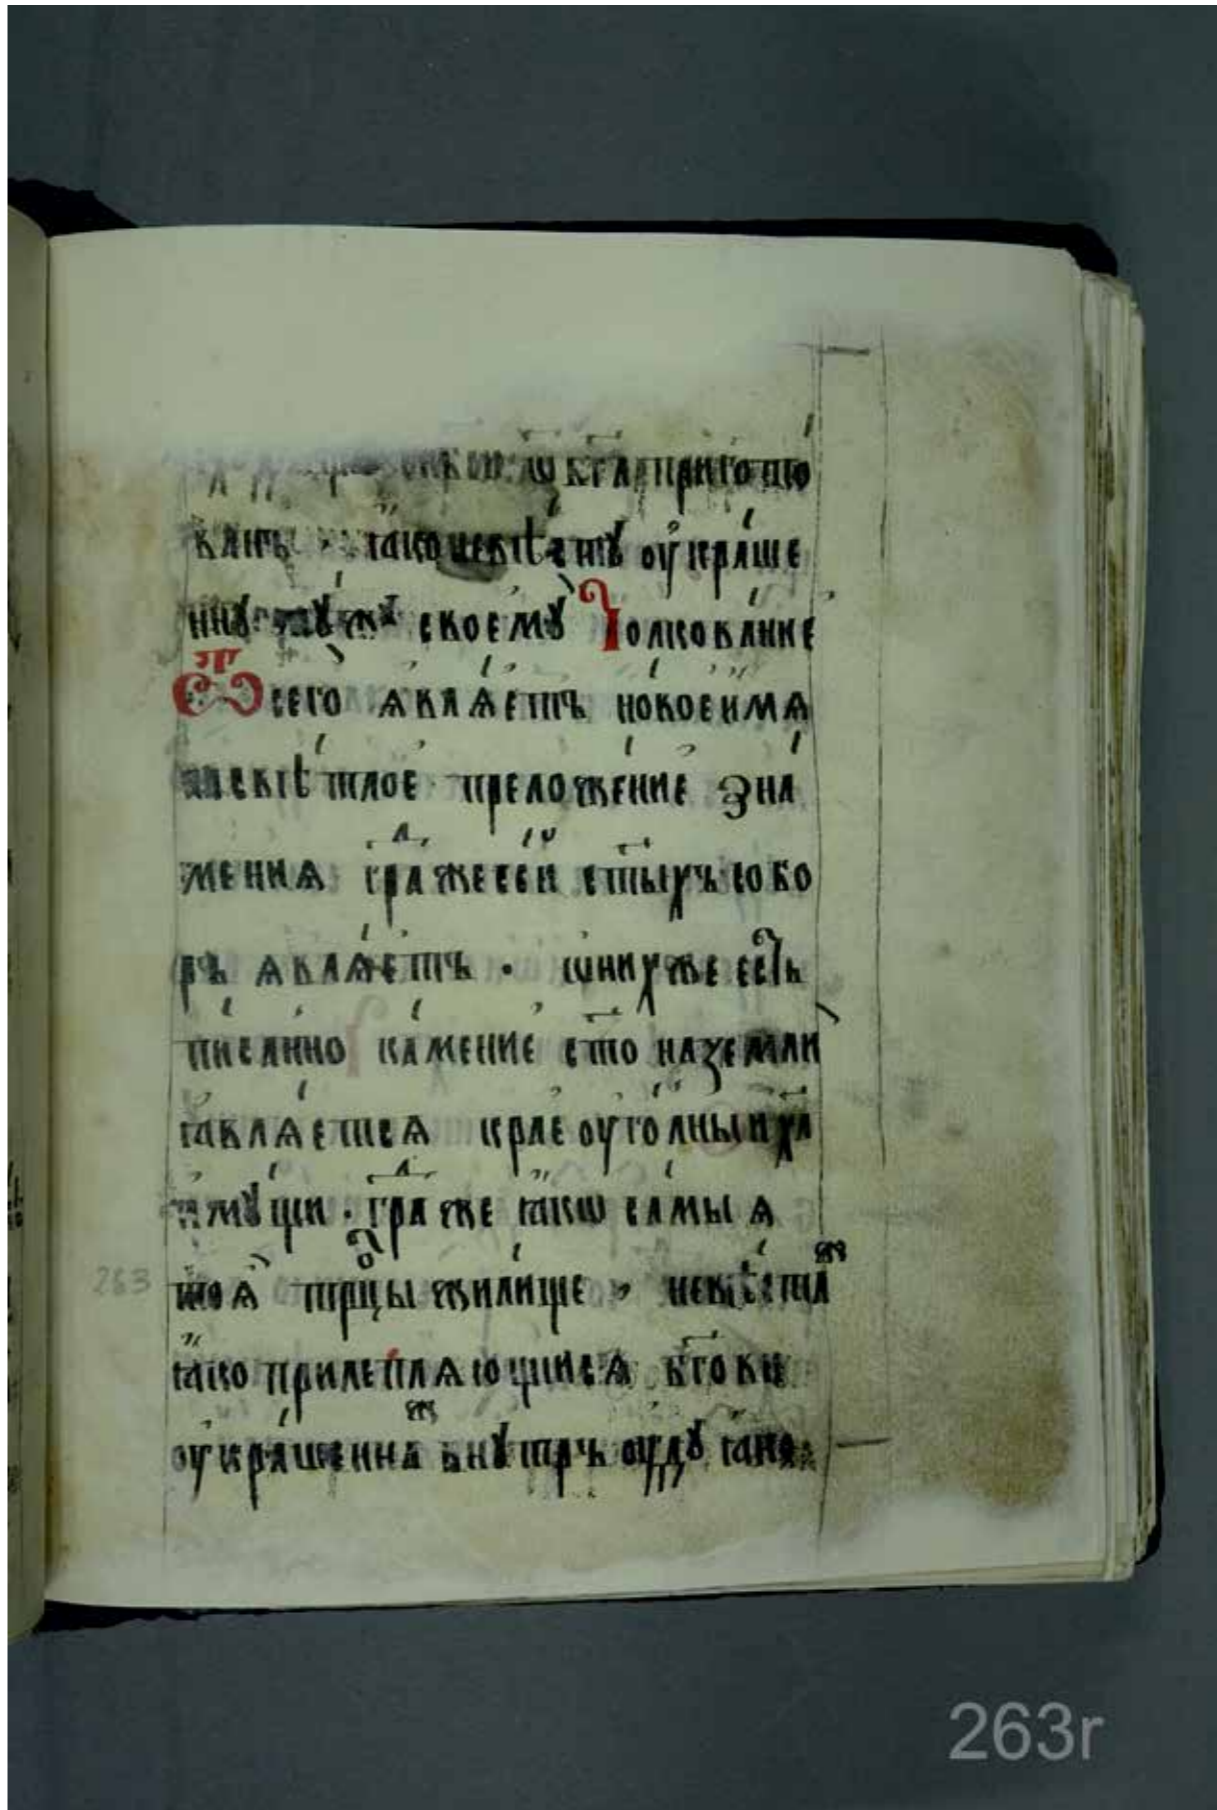 ѿ бг҃а приготѻ
ванъ · ꙗко невѣстꙋ оукраше
ннꙋ мꙋжꙋ своемꙋ Толкование
Ѿ сего ѧвлѧетъ нокоеимѧ
несвѣтлое преложение Зна
мениѧ гра͏ⷣ же сеи ст҃ыхъ собо
ръ ѧвлѧетъ · ѡнихже есть
писанно камение ст҃о наземли
ꙗвлѧетсѧ краеоуголныи ха҃
имꙋщи · гра͏ⷣ же ꙗкѡ самыѧ
тоѧ трⷪ҇цы жилище · невѣстаⷤ
ꙗко прилеплѧющисѧ бг҃ови
оукрашеннаⷤ внꙋтрь оудꙋ ꙗко
263
263r